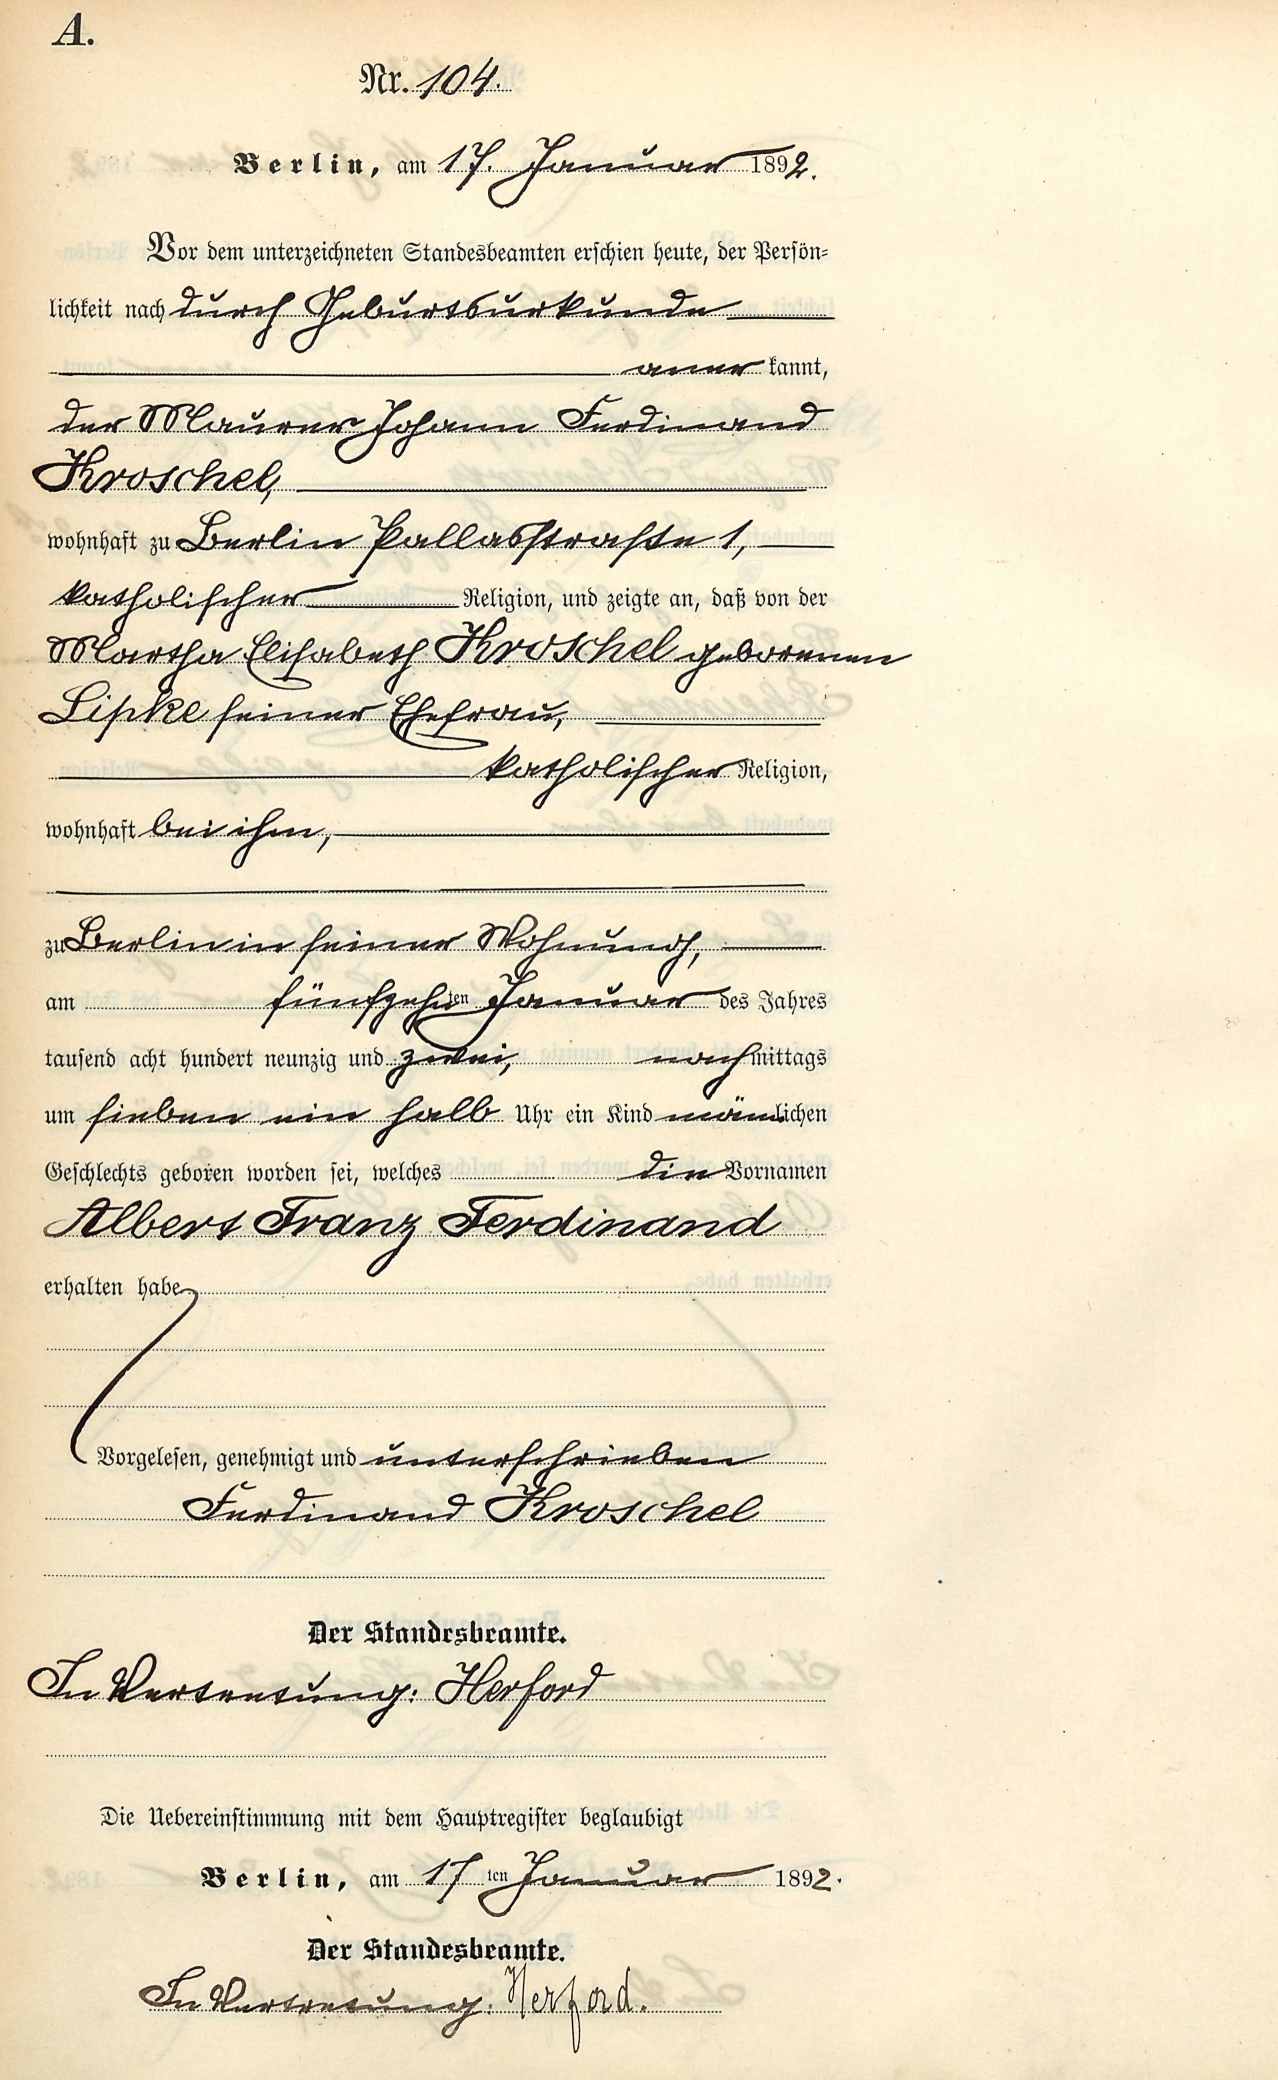 A.
Nr. 104.
Berlin, am 17. Januar 1892.
Vor dem unterzeichneten Standesbeamten erschien heute, der Persön-
lichkeit nach durch Geburtsurkunde
anerkannt,
der Maurer Johann Ferdinand
Kroschel,
wohnhaft zu Berlin Pallasstraße 1,
katholischer Religion, und zeigte an, daß von der
Martha Elisabeth Kroschel geborenen
Lipke seiner Ehefrau,
katholischer Religion,
wohnhaft bei ihm,
zu Berlin in seiner Wohnung,
am fünfzehnten Januar des Jahres
tausend acht hundert neunzig und zwei, nachmittags
um sieben ein halb Uhr ein Kind männlichen
Geschlechts geboren worden sei, welches die Vornamen
Albert Franz Ferdinand
erhalten habe
Vorgelesen, genehmigt und unterschrieben
Ferdinand Kroschel
Der Standesbeamte.
In Vertretung: Herford
Die Uebereinstimmung mit dem Hauptregister beglaubigt
Berlin, am 17ten Januar 1892.
Der Standesbeamte.
In Vertretung: Herford.